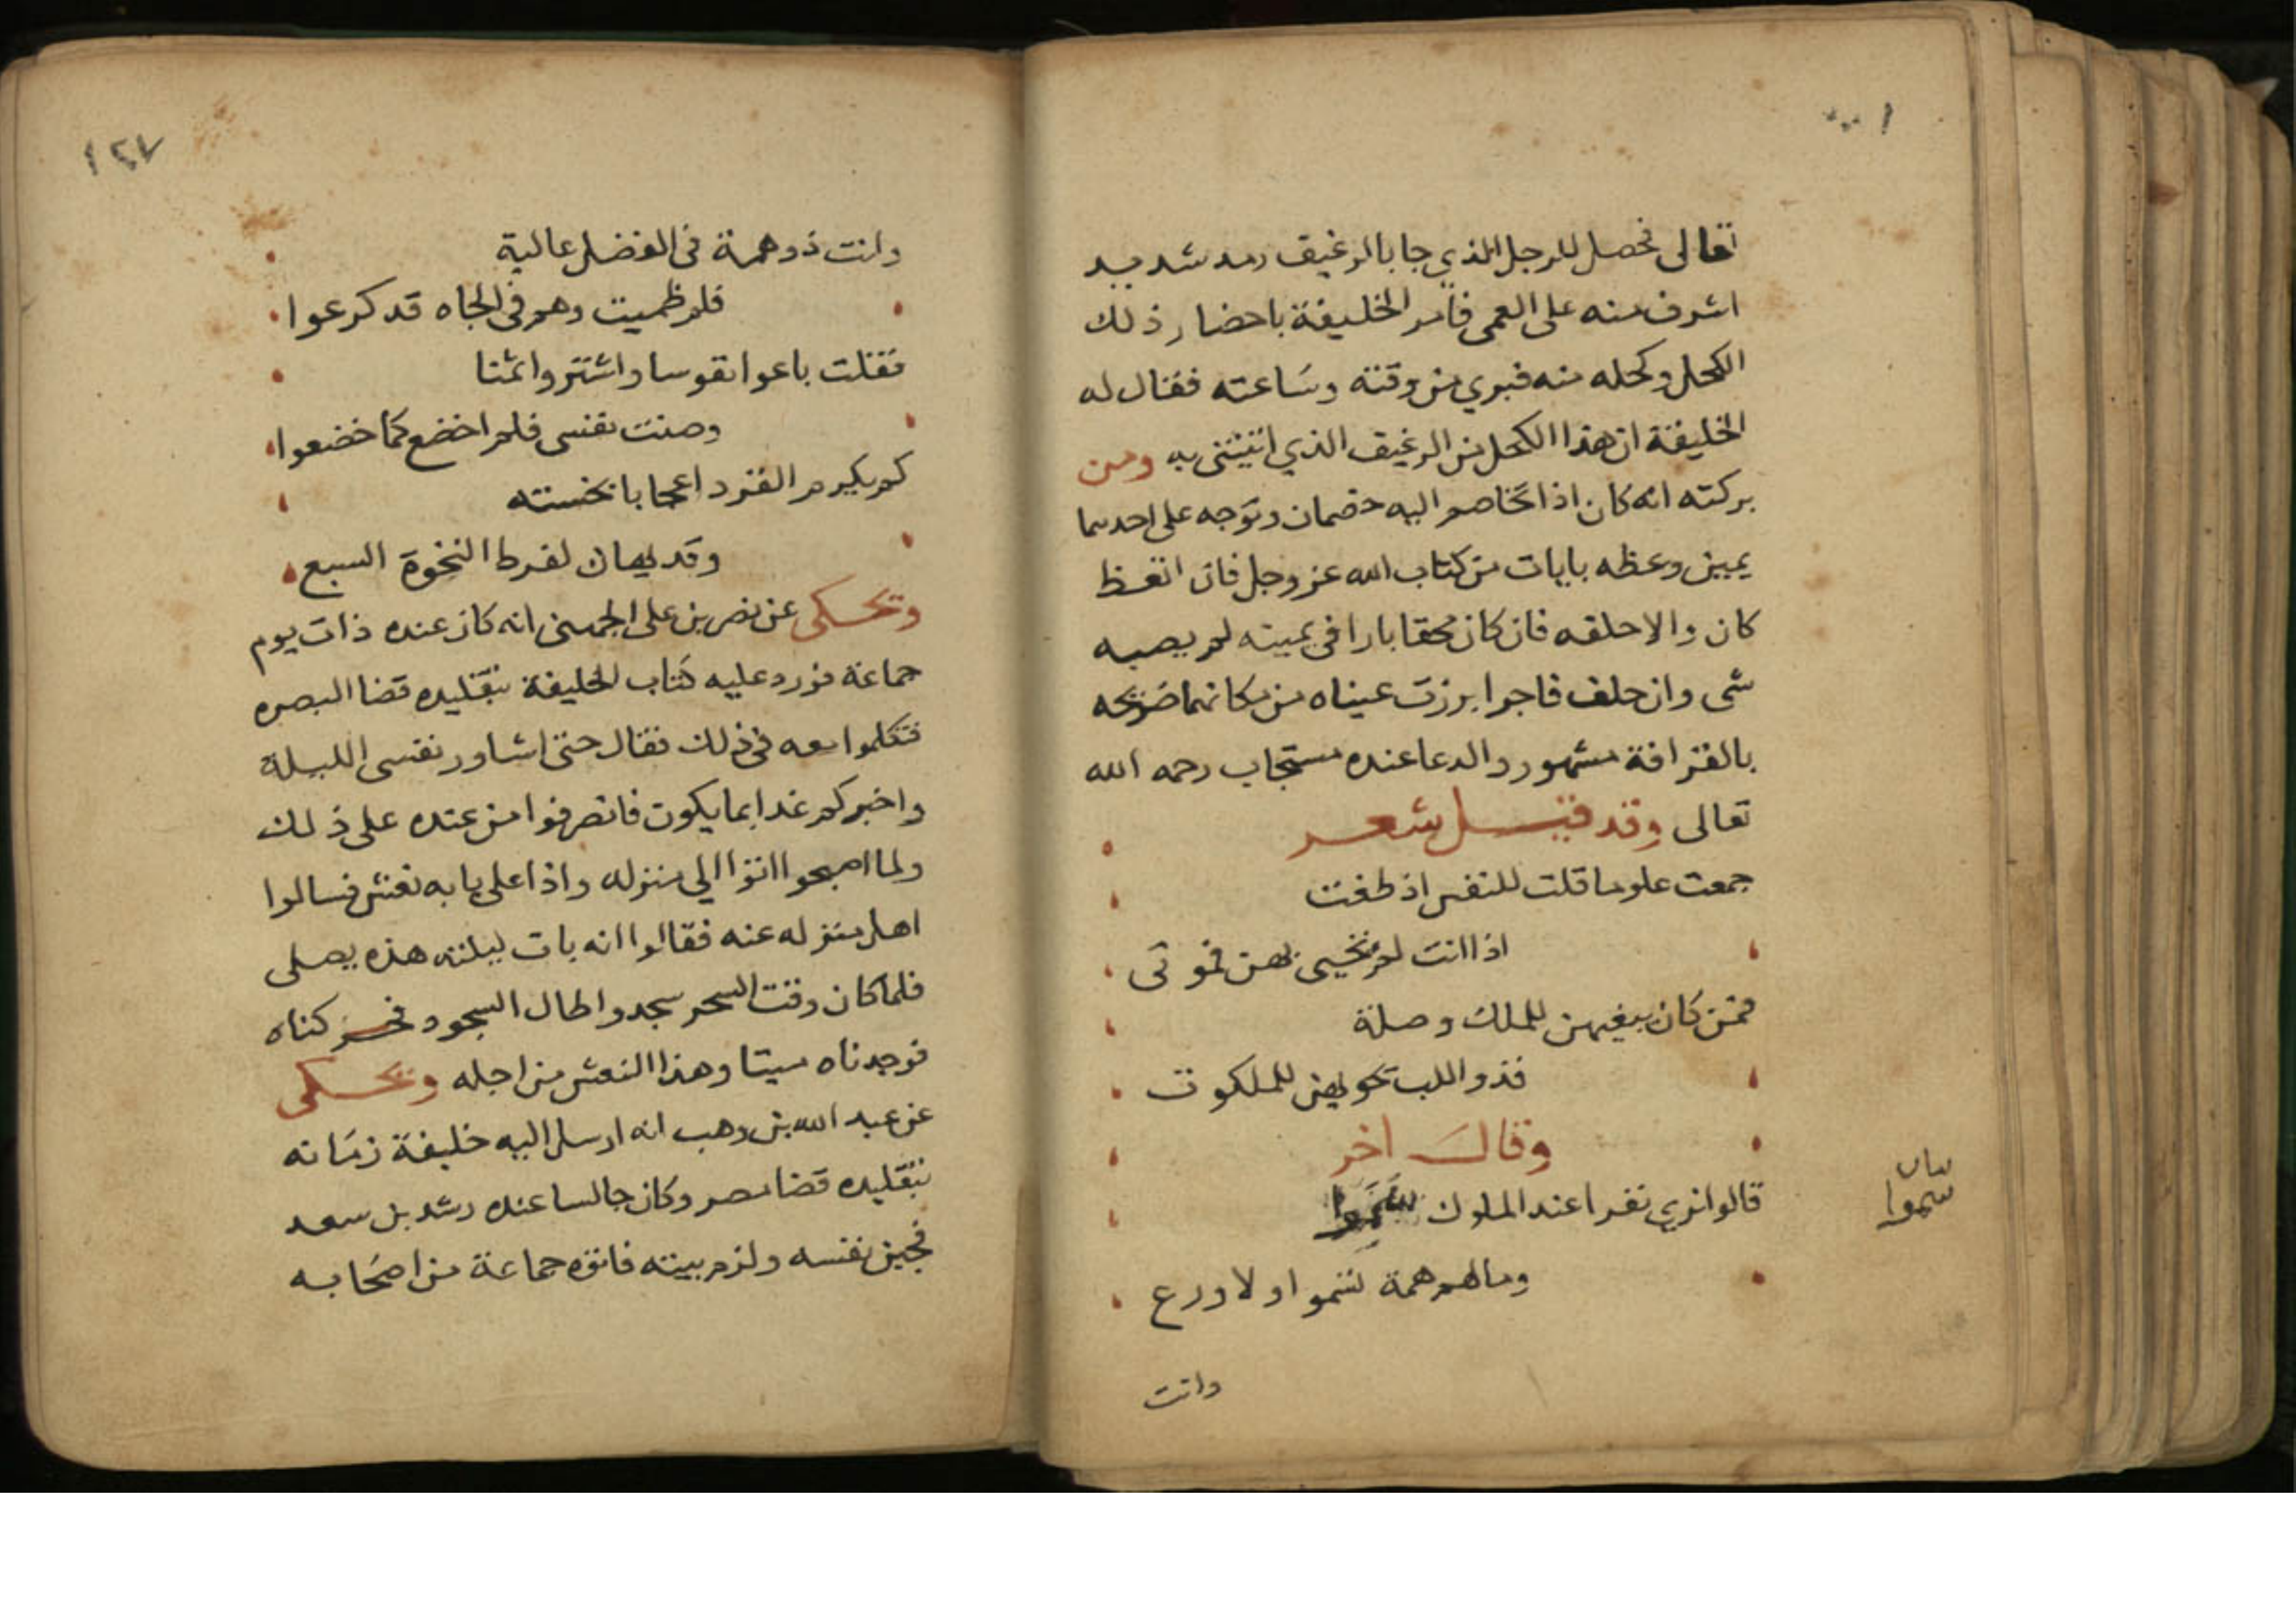 تعالى فحصل للرجل الذي جا بالرغيف رمد شديد
اشرف منه على العمى فأمر الخليفة باحضار ذلك
الكحل وكحله منه فبري من وقته وساعته فقال له
الخليفة ان هذا الكحل من الرغيف الذي اتيتني به ومن
بركته انه كان اذا تخاصم اليه خصمان وتوجه على احدهما
يمين وعظه بايات من كتاب الله عز وجل فان اتعظ
كان والا حلفه فان كان محقا بارا في يمينه لم يصبه
شى وان حلف فاجرا برزت عيناه من مكانهما ضريحه
بالقرافة مشهور والدعا عنده مستجاب رحمه الله
تعالى وقد قيل شعر
جمعت علوما قلت للنفس اذ طغت
اذا انت لم تحيى بهن فموتى
فمن كان يبغيهن للملك وصلة
فذو اللب تحويهن للملكوت
وقال اخر
قالوا نري نفرا عند الملوك سموا
بيان
سموا
وما لهم همة تسموا ولا ورع
وانت
١٢٧
وانت ذو همة في الفضل عالية
فلم ظميت وهم في الجاه قد كرعوا
فقلت باعوا نفوسا واشتروا ثمنا
وصنت نفسي فلم اخضع كما خضعوا
كم يكرم القرد اعجابا بخسته
وقد يهان لفرط النخوة السبع
وتحكى عن نصر بن على الجهضمى انه كان عنده ذات يوم
جماعة فورد عليه كتاب الخليفة بتقليده قضا البصره
فتكلموا معه في ذلك فقال حتى اشاور نفسى الليلة
واخبركم غدا بما يكون فانصرفوا من عنده على ذلك
ولما اصبحوا اتوا الي منزله واذا على بابه نعش فسالوا
اهل منزله عنه فقالوا انه بات ليلته هذه يصلى
فلما كان وقت السحر سجد واطال السجود فحركناه
فوجدناه ميتا وهذا النعش من اجله وتحكى
عن عبد الله بن وهب انه ارسل اليه خليفة زمانه
بتقليده قضا مصر وكان جالسا عنده رشد بن سعد
فجنن نفسه ولزم بيته فاتوه جماعة من اصحابه